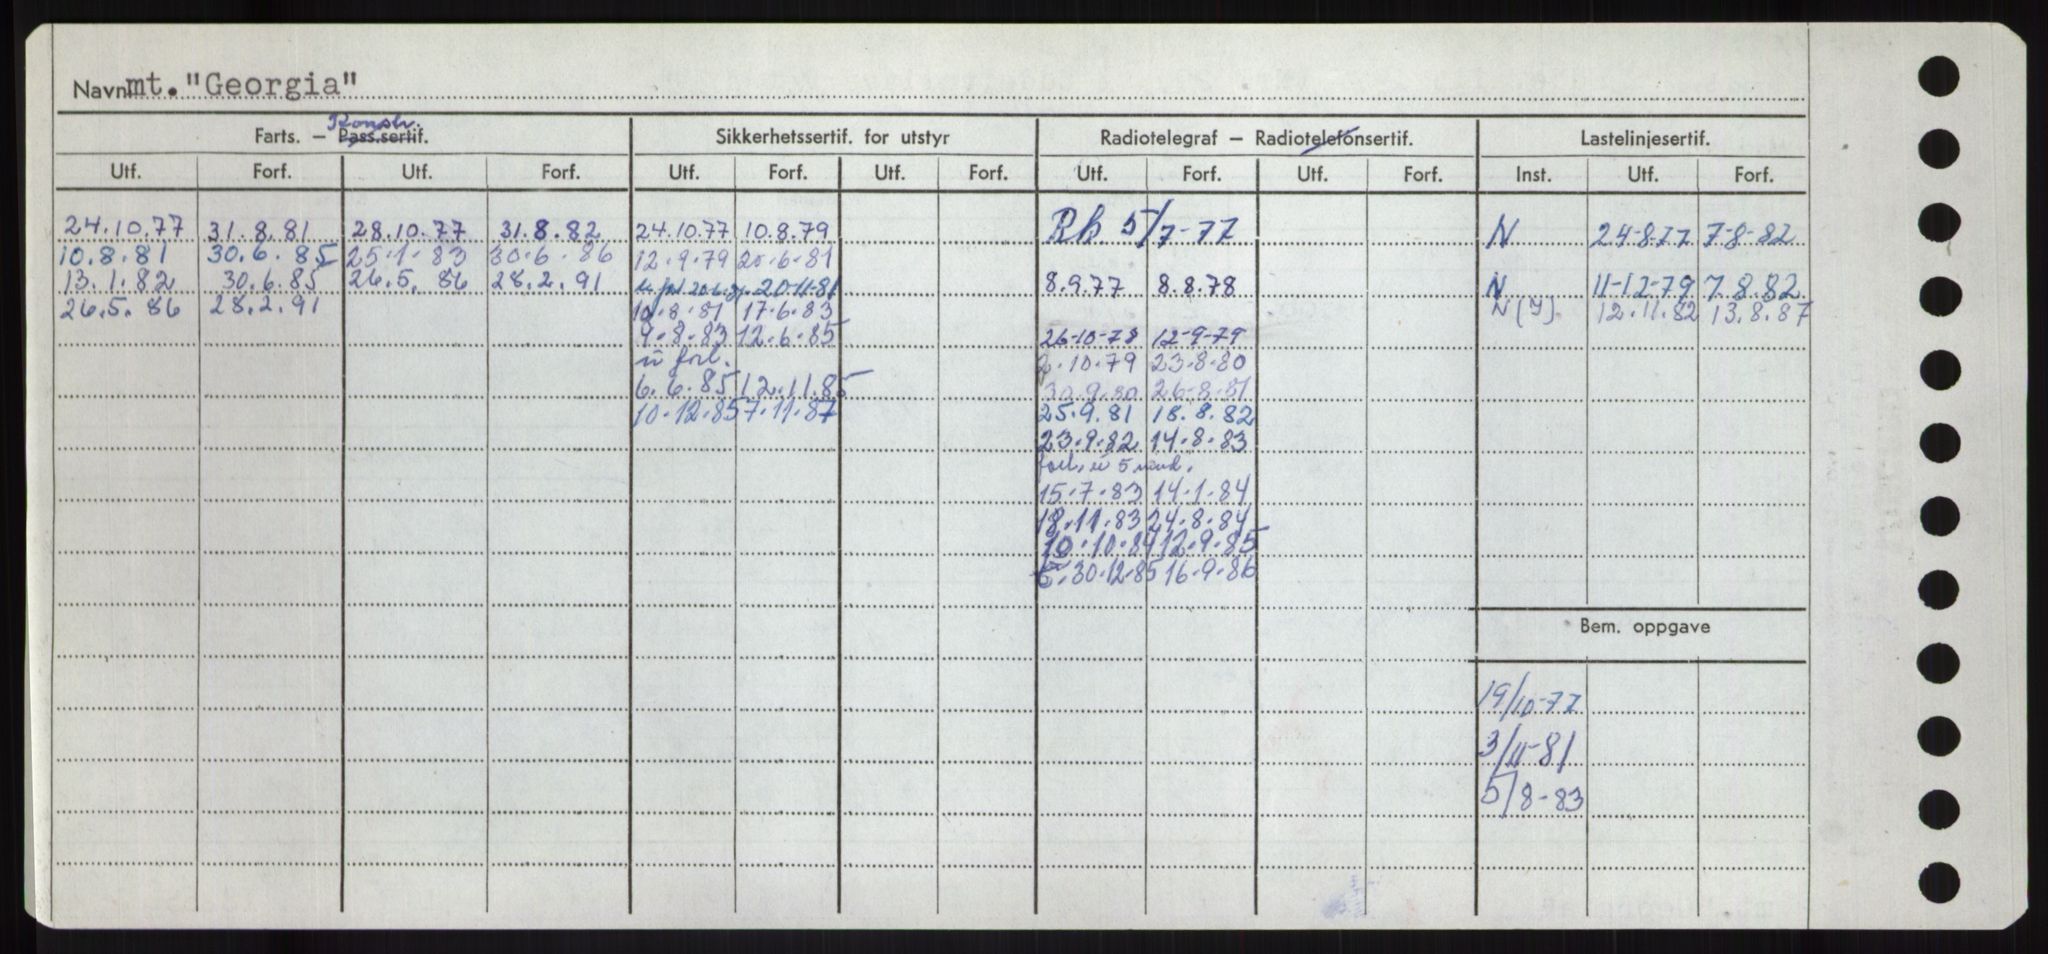 Navn mt. "Georgia"
Konstr.
Farts. — Pass.sertif. Sikkerhetssertif. for utstyr Radiotelegraf — Radiotelefonsertif. Lastelinjesertif.
Utf. Forf. Utf. Forf. Utf. Forf. Utf. Forf. Utf. Forf. Utf. Forf. Inst. Utf. Forf.
24.10.77 31.8.81 28.10.77 31.8.82 24.10.77 10.8.79 Rb. 5/7-77 N 24-8-77 7-8-82
10.8.81 30.6.85 25.1.83 30.6.86 12.9.79 20.6.81
13.1.82 30.6.85 26.5.86 28.2.91 20.6.81 20-11-81 8.9.77 8.8.78 N 11-12-79 7.8.82
26.5.86 28.2.91 10.8.81 17.6.83 N [Y] 12.11.82 13.8.87
9.8.83 12.6.85 26-10-78 12-9-79
ü forl. 2.10.79 23.8.80
6.6.85 12.11.85 30.9.80 26.8.81
10.12.85 7.11.87 25.9.81 18.8.82
23.9.82 14.8.83
forl. ü 5 mnd.
15.7.83 14.1.84
18.11.83 24.8.84
10.10.84 12.9.85
30.12.85 16.9.86
Bem. oppgave
19/10-77
3/11-81
5/8-83